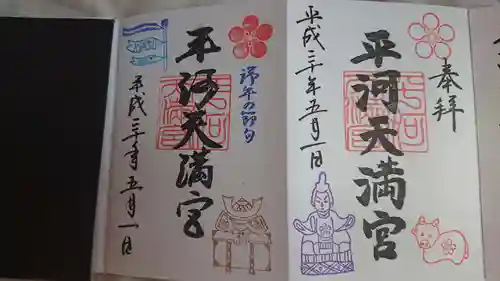 奉拝
平河天満宮
平成三十年五月一日
端午の節句
平河天満宮
平成三十年五月一日